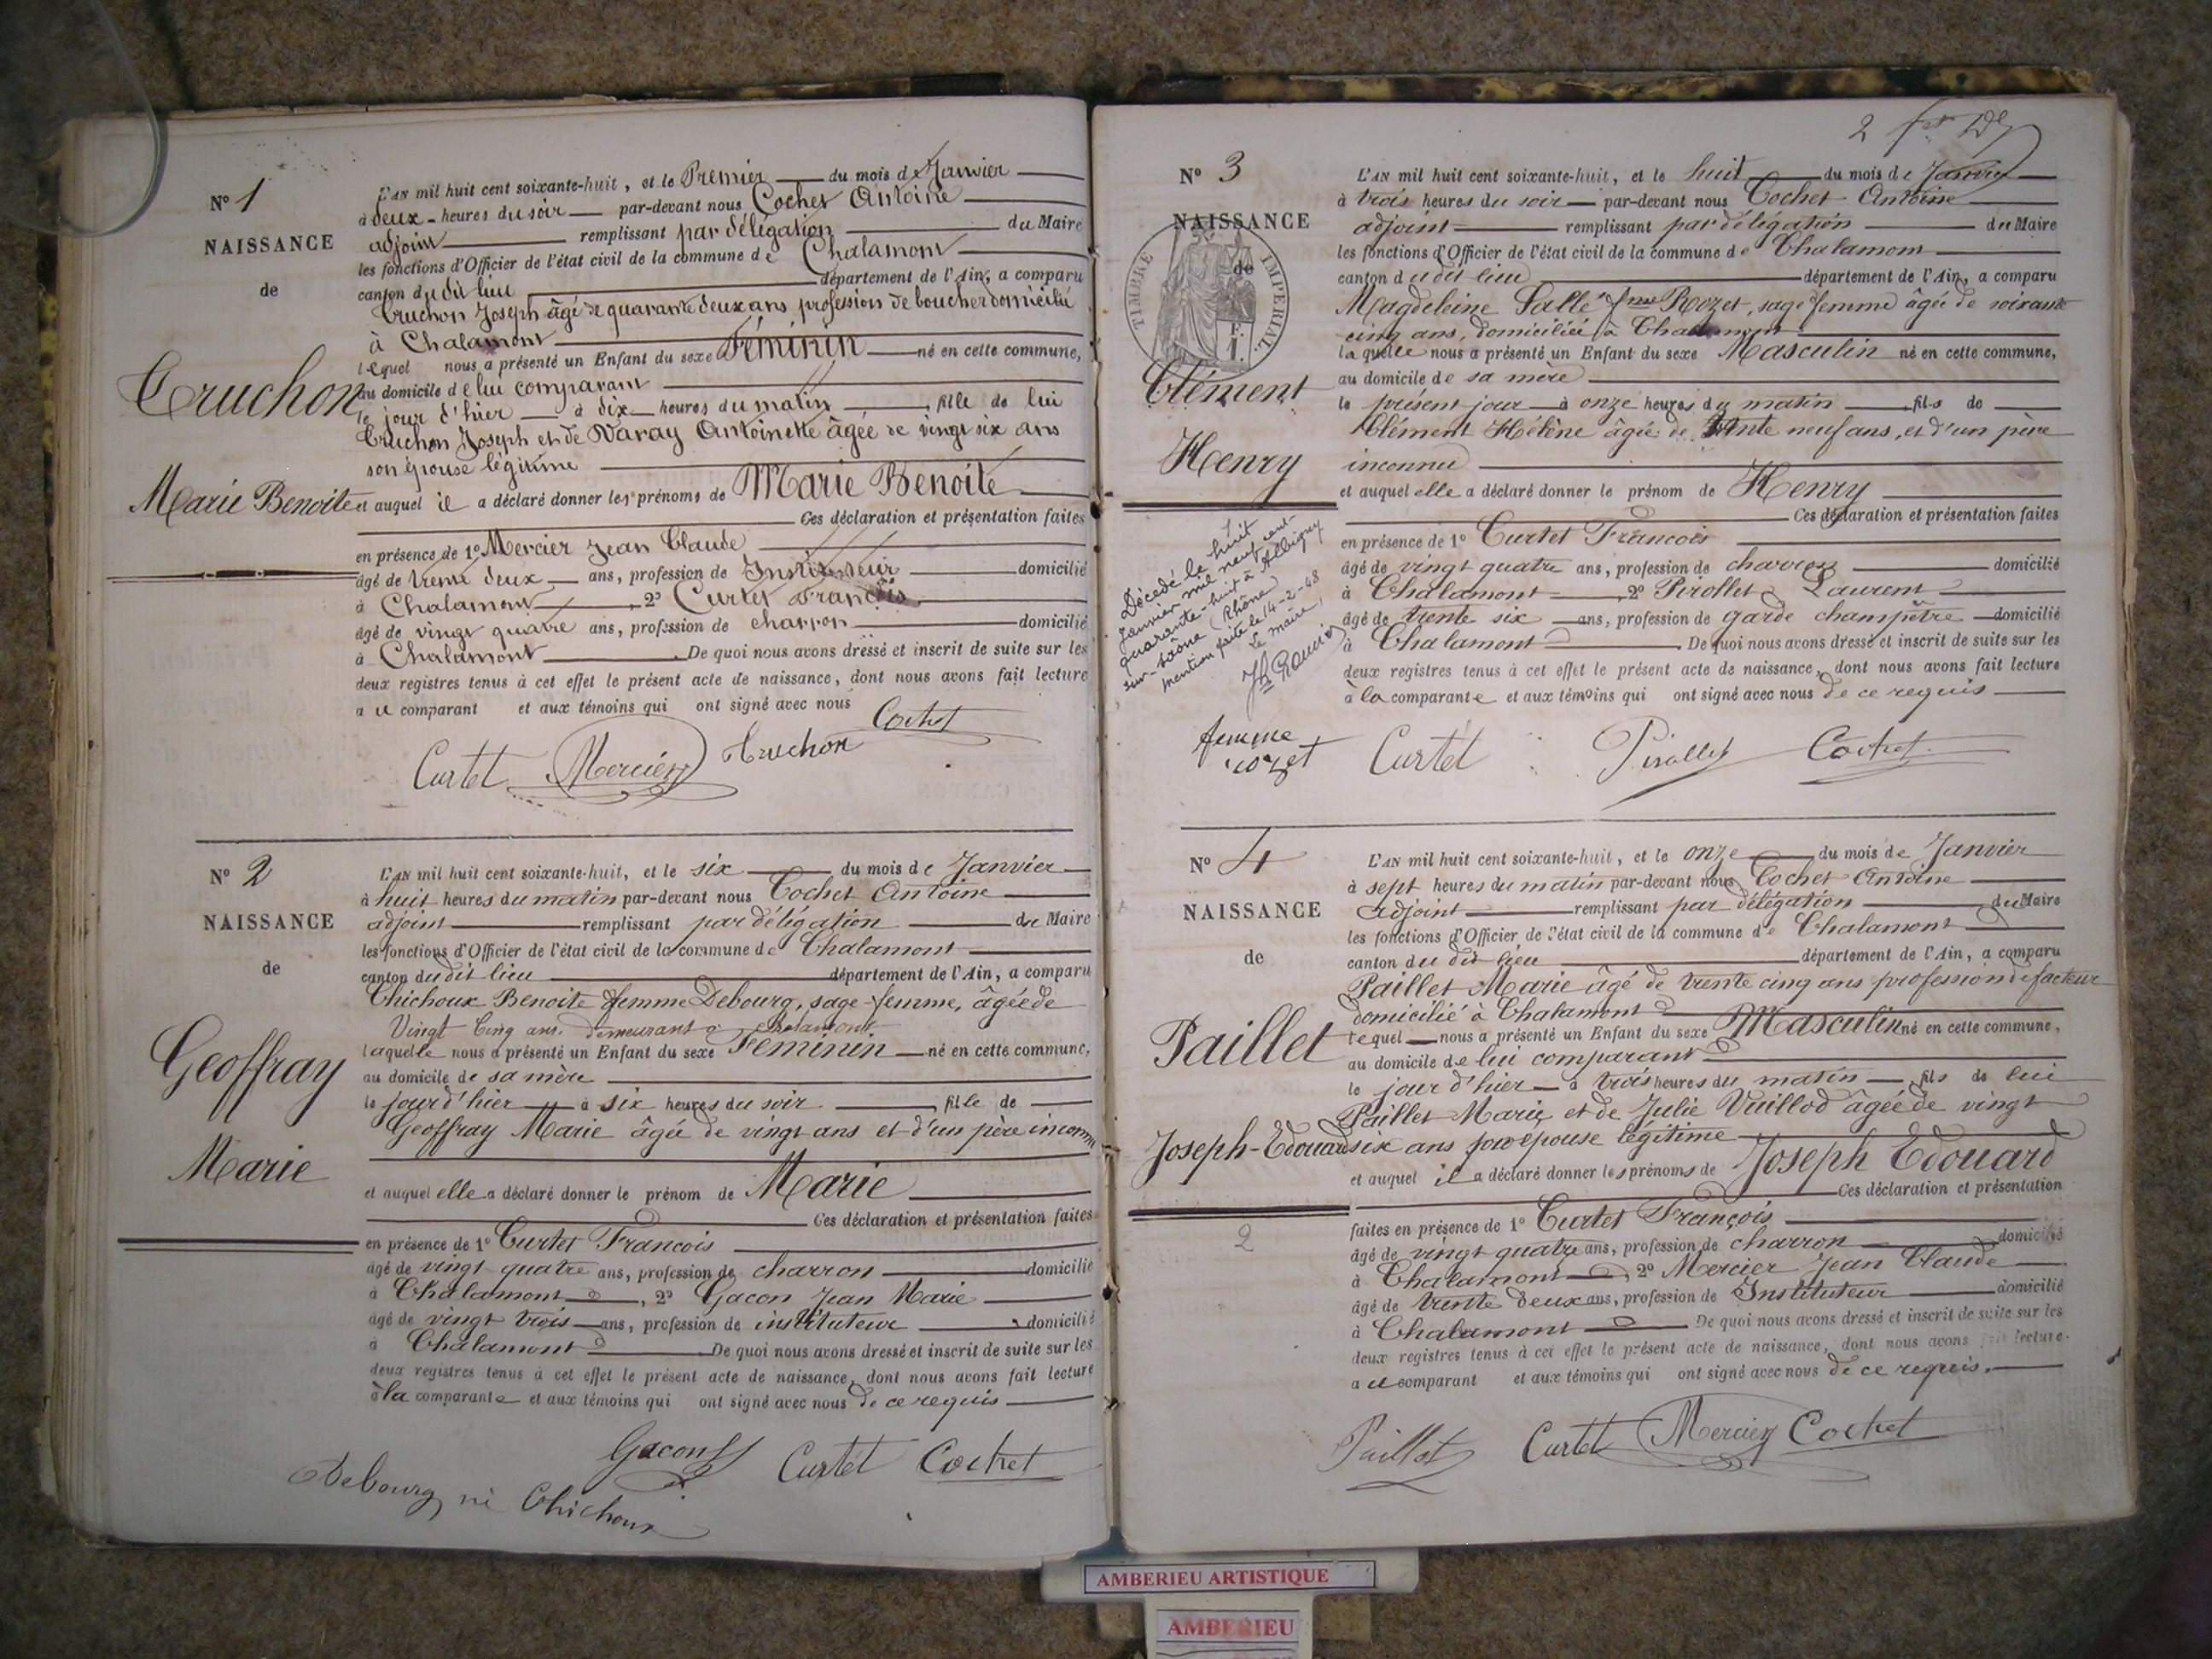 N° 1
NAISSANCE
de
Truchon
Marie Benoite
L'AN mil huit cent soixante-huit, et le Premier du mois de Janvier
à deux heures du soir par-devant nous Cochet Antoine
adjoint remplissant par délégation du Maire
les fonctions d'Officier de l'état civil de la commune de Chalamont
canton du dit lieu département de l'Ain, a comparu
Truchon Joseph âgé de quarante deux ans profession de boucher domicilié
à Chalamont
lequel nous a présenté un Enfant du sexe Féminin né en cette commune,
au domicile de lui comparant
le jour d'hier à dix heures du matin, fille de lui
Truchon Joseph et de Varay Antoinette âgée de vingt six ans
son épouse légitime
et auquel il a déclaré donner les prénoms de Marie Benoite
Ces déclaration et présentation faites
en présence de 1° Mercier Jean Claude
âgé de trente deux ans, profession de Instituteur domicilié
à Chalamont, 2° Curtet François
âgé de vingt quatre ans, profession de charron domicilié
à Chalamont. De quoi nous avons dressé et inscrit de suite sur les
deux registres tenus à cet effet le présent acte de naissance, dont nous avons fait lecture
au comparant et aux témoins qui ont signé avec nous
Curtet Mercier Truchon Cochet
N° 2
NAISSANCE
de
Geoffray
Marie
L'AN mil huit cent soixante-huit, et le six du mois de Janvier
à huit heures du matin par-devant nous Cochet Antoine
adjoint remplissant par délégation du Maire
les fonctions d'Officier de l'état civil de la commune de Chalamont
canton du dit lieu département de l'Ain, a comparu
Chichoux Benoite femme Debourg, sage-femme, âgée de
Vingt Cinq ans. demeurant à Chalamont
laquelle nous a présenté un Enfant du sexe Féminin né en cette commune,
au domicile de sa mère
le jour d'hier à six heures du soir, fille de
Geoffray Marie âgée de vingt ans et d'un père inconnu
et auquel elle a déclaré donner le prénom de Marie
Ces déclaration et présentation faites
en présence de 1° Curtet Francois
âgé de vingt quatre ans, profession de charron domicilié
à Chalamont, 2° Gacon Jean Marie
âgé de vingt trois ans, profession de instituteur domicilié
à Chalamont De quoi nous avons dressé et inscrit de suite sur les
deux registres tenus à cet effet le présent acte de naissance, dont nous avons fait lecture
à la comparante et aux témoins qui ont signé avec nous de ce requis
Gacon Curtet Cochet
Debourg né Chichoux
2
N° 3
NAISSANCE
de
TIMBRE IMPERIAL
Clément
Henry
Décédé le huit
Janvier mil neuf cent-
quarante-huit à Albigny
sur-Saône (Rhône)
mention faite le 14-2-48
Le maire,
L'AN mil huit cent soixante-huit, et le huit du mois de Janvier
à trois heures du soir par-devant nous Cochet Antoine
adjoint remplissant par délégation du Maire
les fonctions d'Officier de l'état civil de la commune de Chalamont
canton du dit lieu département de l'Ain, a comparu
Magdeleine Sallé fme Rozet, sage femme âgée de soixante
cinq ans, domiciliée à Chalamont
laquelle nous a présenté un Enfant du sexe Masculin né en cette commune,
au domicile de sa mère
le présent jour à onze heures du matin, fils de
Clément Hélène âgée de trente neuf ans, et d'un père
inconnu
et auquel elle a déclaré donner le prénom de Henry
Ces déclaration et présentation faites
en présence de 1° Curtet Francois
âgé de vingt quatre ans, profession de charron domicilié
à Chalamont, 2° Pirollet Laurent
âgé de trente six ans, profession de garde champêtre domicilié
à Chalamont. De quoi nous avons dressé et inscrit de suite sur les
deux registres tenus à cet effet le présent acte de naissance, dont nous avons fait lecture
à la comparante et aux témoins qui ont signé avec nous de ce requis
femme
rozet Curtet Pirollet Cochet
N° 4
NAISSANCE
de
Paillet
Joseph-Edouard
2
L'AN mil huit cent soixante-huit, et le onze du mois de Janvier
à sept heures du matin par-devant nous Cochet Antoine
adjoint remplissant par délégation du Maire
les fonctions d'Officier de l'état civil de la commune de Chalamont
canton du dit lieu département de l'Ain, a comparu
Paillet Marie âgé de trente cinq ans profession de facteur
domicilié à Chalamont
lequel nous a présenté un Enfant du sexe Masculin né en cette commune,
au domicile de lui comparant
le jour d'hier à trois heures du matin, fils de lui
Paillet Marie et de Julie Vuillod âgée de vingt
six ans son épouse légitime
et auquel il a déclaré donner les prénoms de Joseph Edouard
Ces déclaration et présentation
faites en présence de 1° Curtet François
âgé de vingt quatre ans, profession de charron domicilié
à Chalamont, 2° Mercier Jean Claude
âgé de trente deux ans, profession de Instituteur domicilié
à Chalamont De quoi nous avons dressé et inscrit de suite sur les
deux registres tenus à cet effet le présent acte de naissance, dont nous avons fait lecture
au comparant et aux témoins qui ont signé avec nous de ce requis.
Paillet Curtet Mercier Cochet
AMBERIEU ARTISTIQUE
AMBERIEU